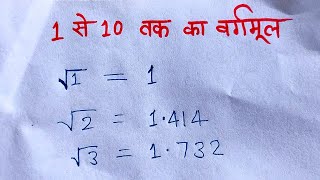 1 से 10 तक का वर्गमूल
√1 = 1
√2 = 1.414
√3 = 1.732